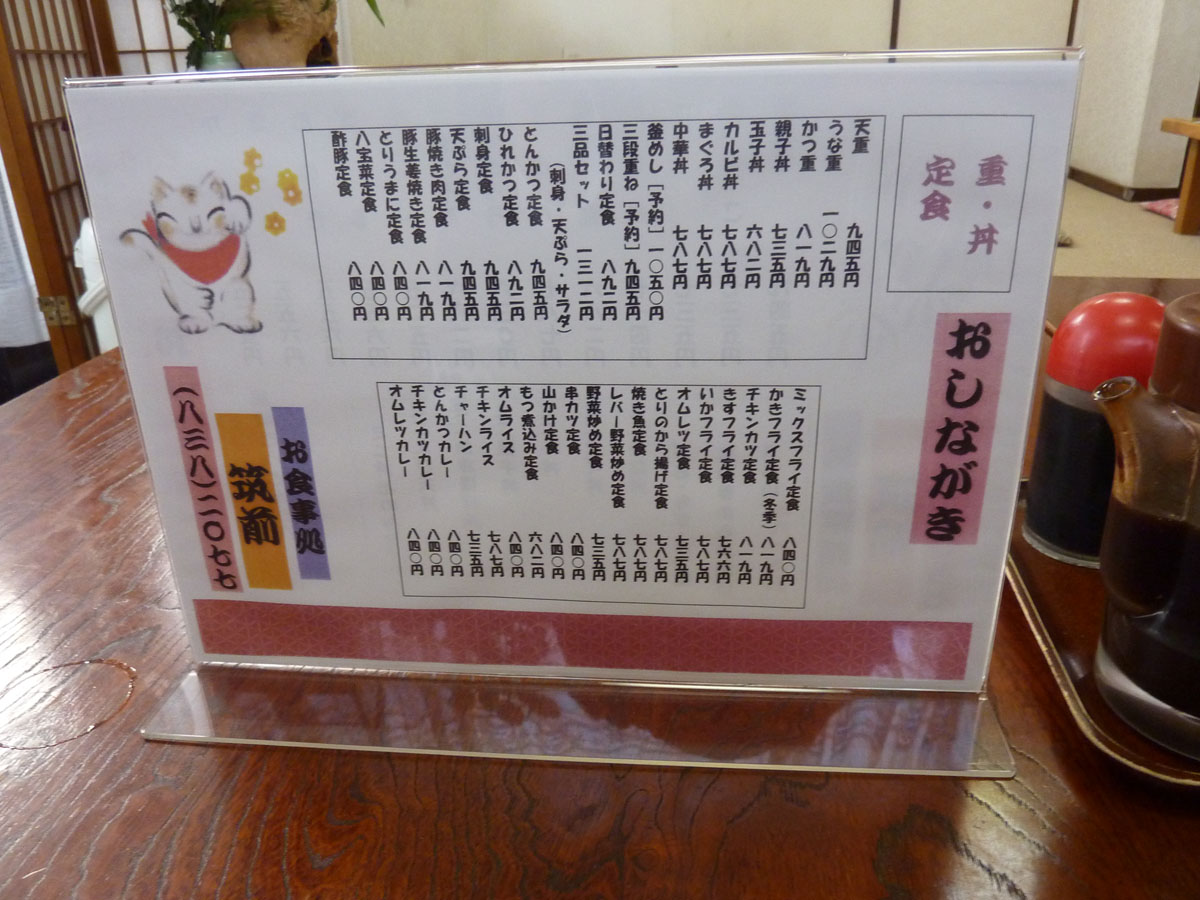 おしながき
重・丼
定食
天重 九四五円
うな重 一〇二九円
かつ重 八一九円
親子丼 七三五円
玉子丼 六八二円
カルビ丼 七八七円
まぐろ丼 七八七円
中華丼 七八七円
釜めし[予約] 一〇五〇円
三段重ね[予約] 九四五円
日替わり定食 八九二円
三品セット 一三一二円
(刺身・天ぷら・サラダ)
とんかつ定食 九四五円
ひれかつ定食 八九二円
刺身定食 九四五円
天ぷら定食 九四五円
豚焼き肉定食 八一九円
豚生姜焼き定食 八一九円
とりうまに定食 八四〇円
八宝菜定食 八四〇円
酢豚定食 八四〇円
ミックスフライ定食 八四〇円
かきフライ定食(冬季) 八一九円
チキンカツ定食 八一九円
きすフライ定食 七六六円
いかフライ定食 七八七円
オムレツ定食 七三五円
とりのから揚げ定食 七八七円
焼き魚定食 七八七円
レバー野菜炒め定食 七八七円
野菜炒め定食 七三五円
串カツ定食 八四〇円
山かけ定食 八四〇円
もつ煮込み定食 六八二円
オムライス 八四〇円
チキンライス 七八七円
チャーハン 七三五円
とんかつカレー 八四〇円
チキンカツカレー 八四〇円
オムレツカレー 八四〇円
お食事処
筑前
(八三八)二〇七七